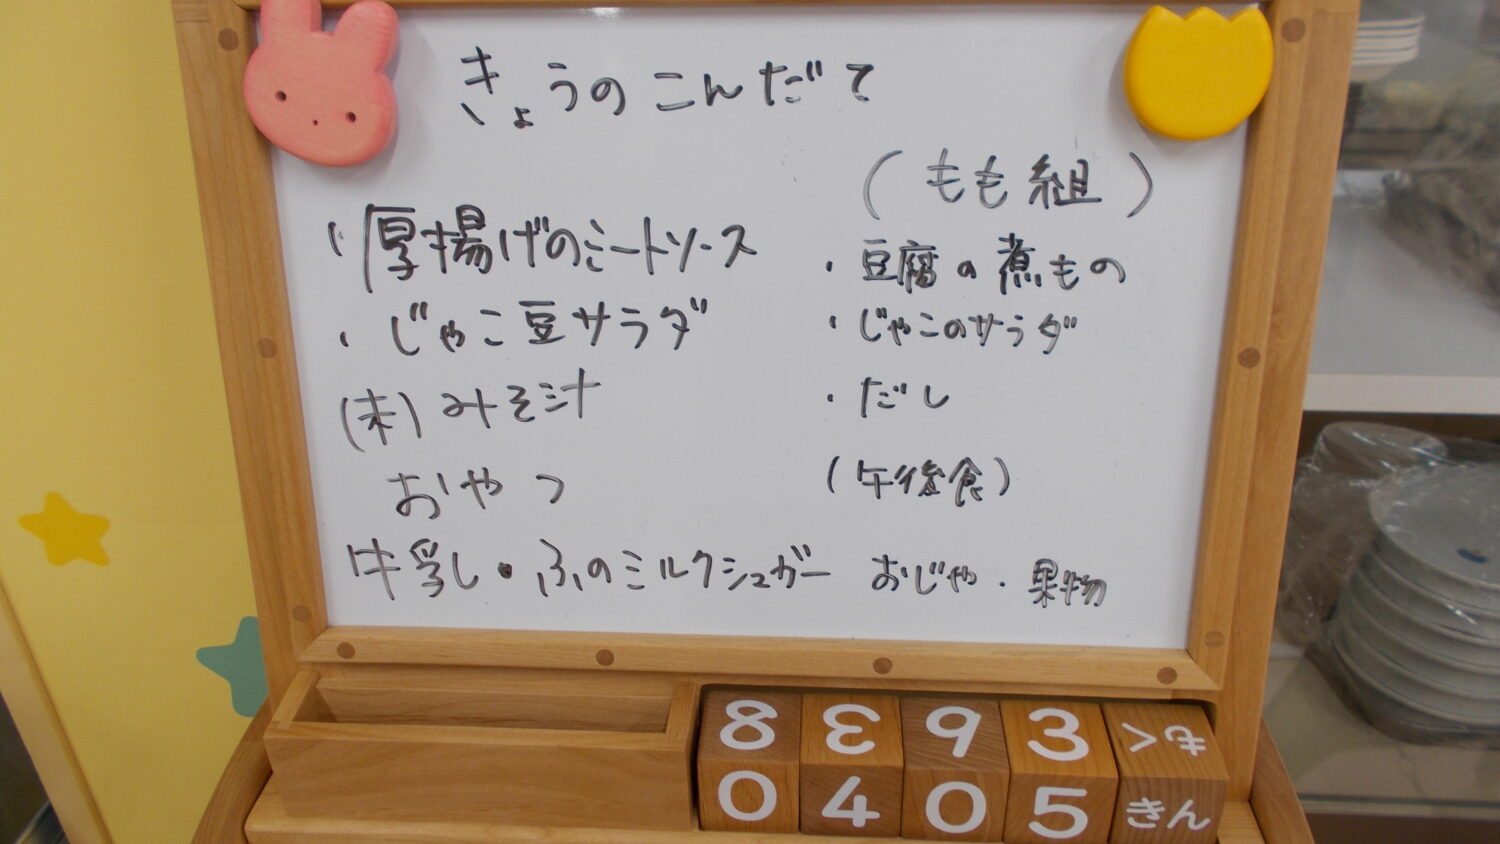 きょうのこんだて
・厚揚げのミートソース
・じゃこ豆サラダ
(未)みそ汁
おやつ
牛乳し・ふのミルクシュガー
(もも組)
・豆腐の煮もの
・じゃこのサラダ
・だし
(午後食)
おじゃ・果物
8 3 9 3 もく
0 4 0 5 きん